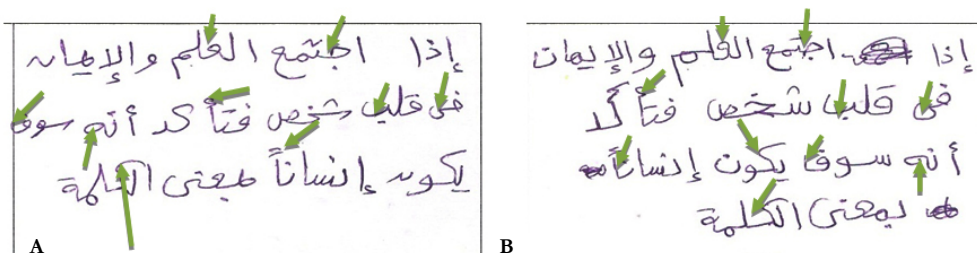 إذا اجتمع العلم والإيمان
في قلب شخص فتأكد أنه سوف
يكون إنساناً بمعنى الكلمة
A
إذا اجتمع العلم والإيمان
في قلب شخص فتأكد
أنه سوف يكون إنساناً
بمعنى الكلمة
B